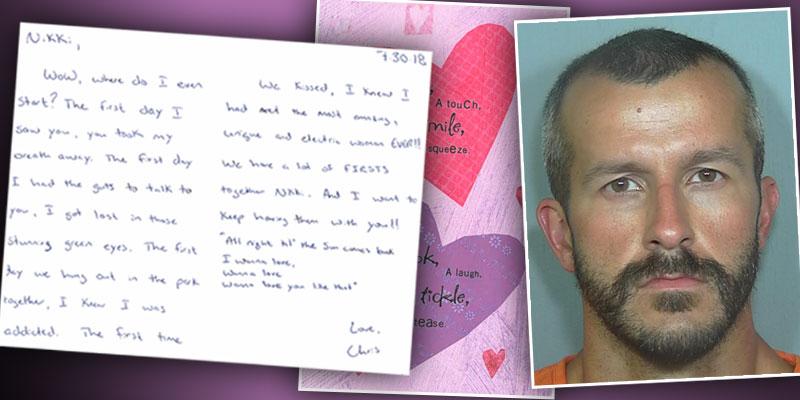 Nikki,
7.30.18
Wow, where do I even
start? The first day I
saw you, you took my
breath away. The first day
I had the guts to talk to
you, I got lost in those
stunning green eyes. The first
day we hung out in the park
together, I knew I was
addicted. The first time
We kissed, I knew I
had met the most amazing,
unique and electric woman EVER!!
We have a lot of FIRSTS
together Nikki. And I want to
Keep having them with you!!
"All night til' the Sun comes back
I wanna love,
wanna love
wanna love you like that"
Love,
Chris
A touch,
mile,
squeeze.
ok, A laugh.
tickle,
tease.